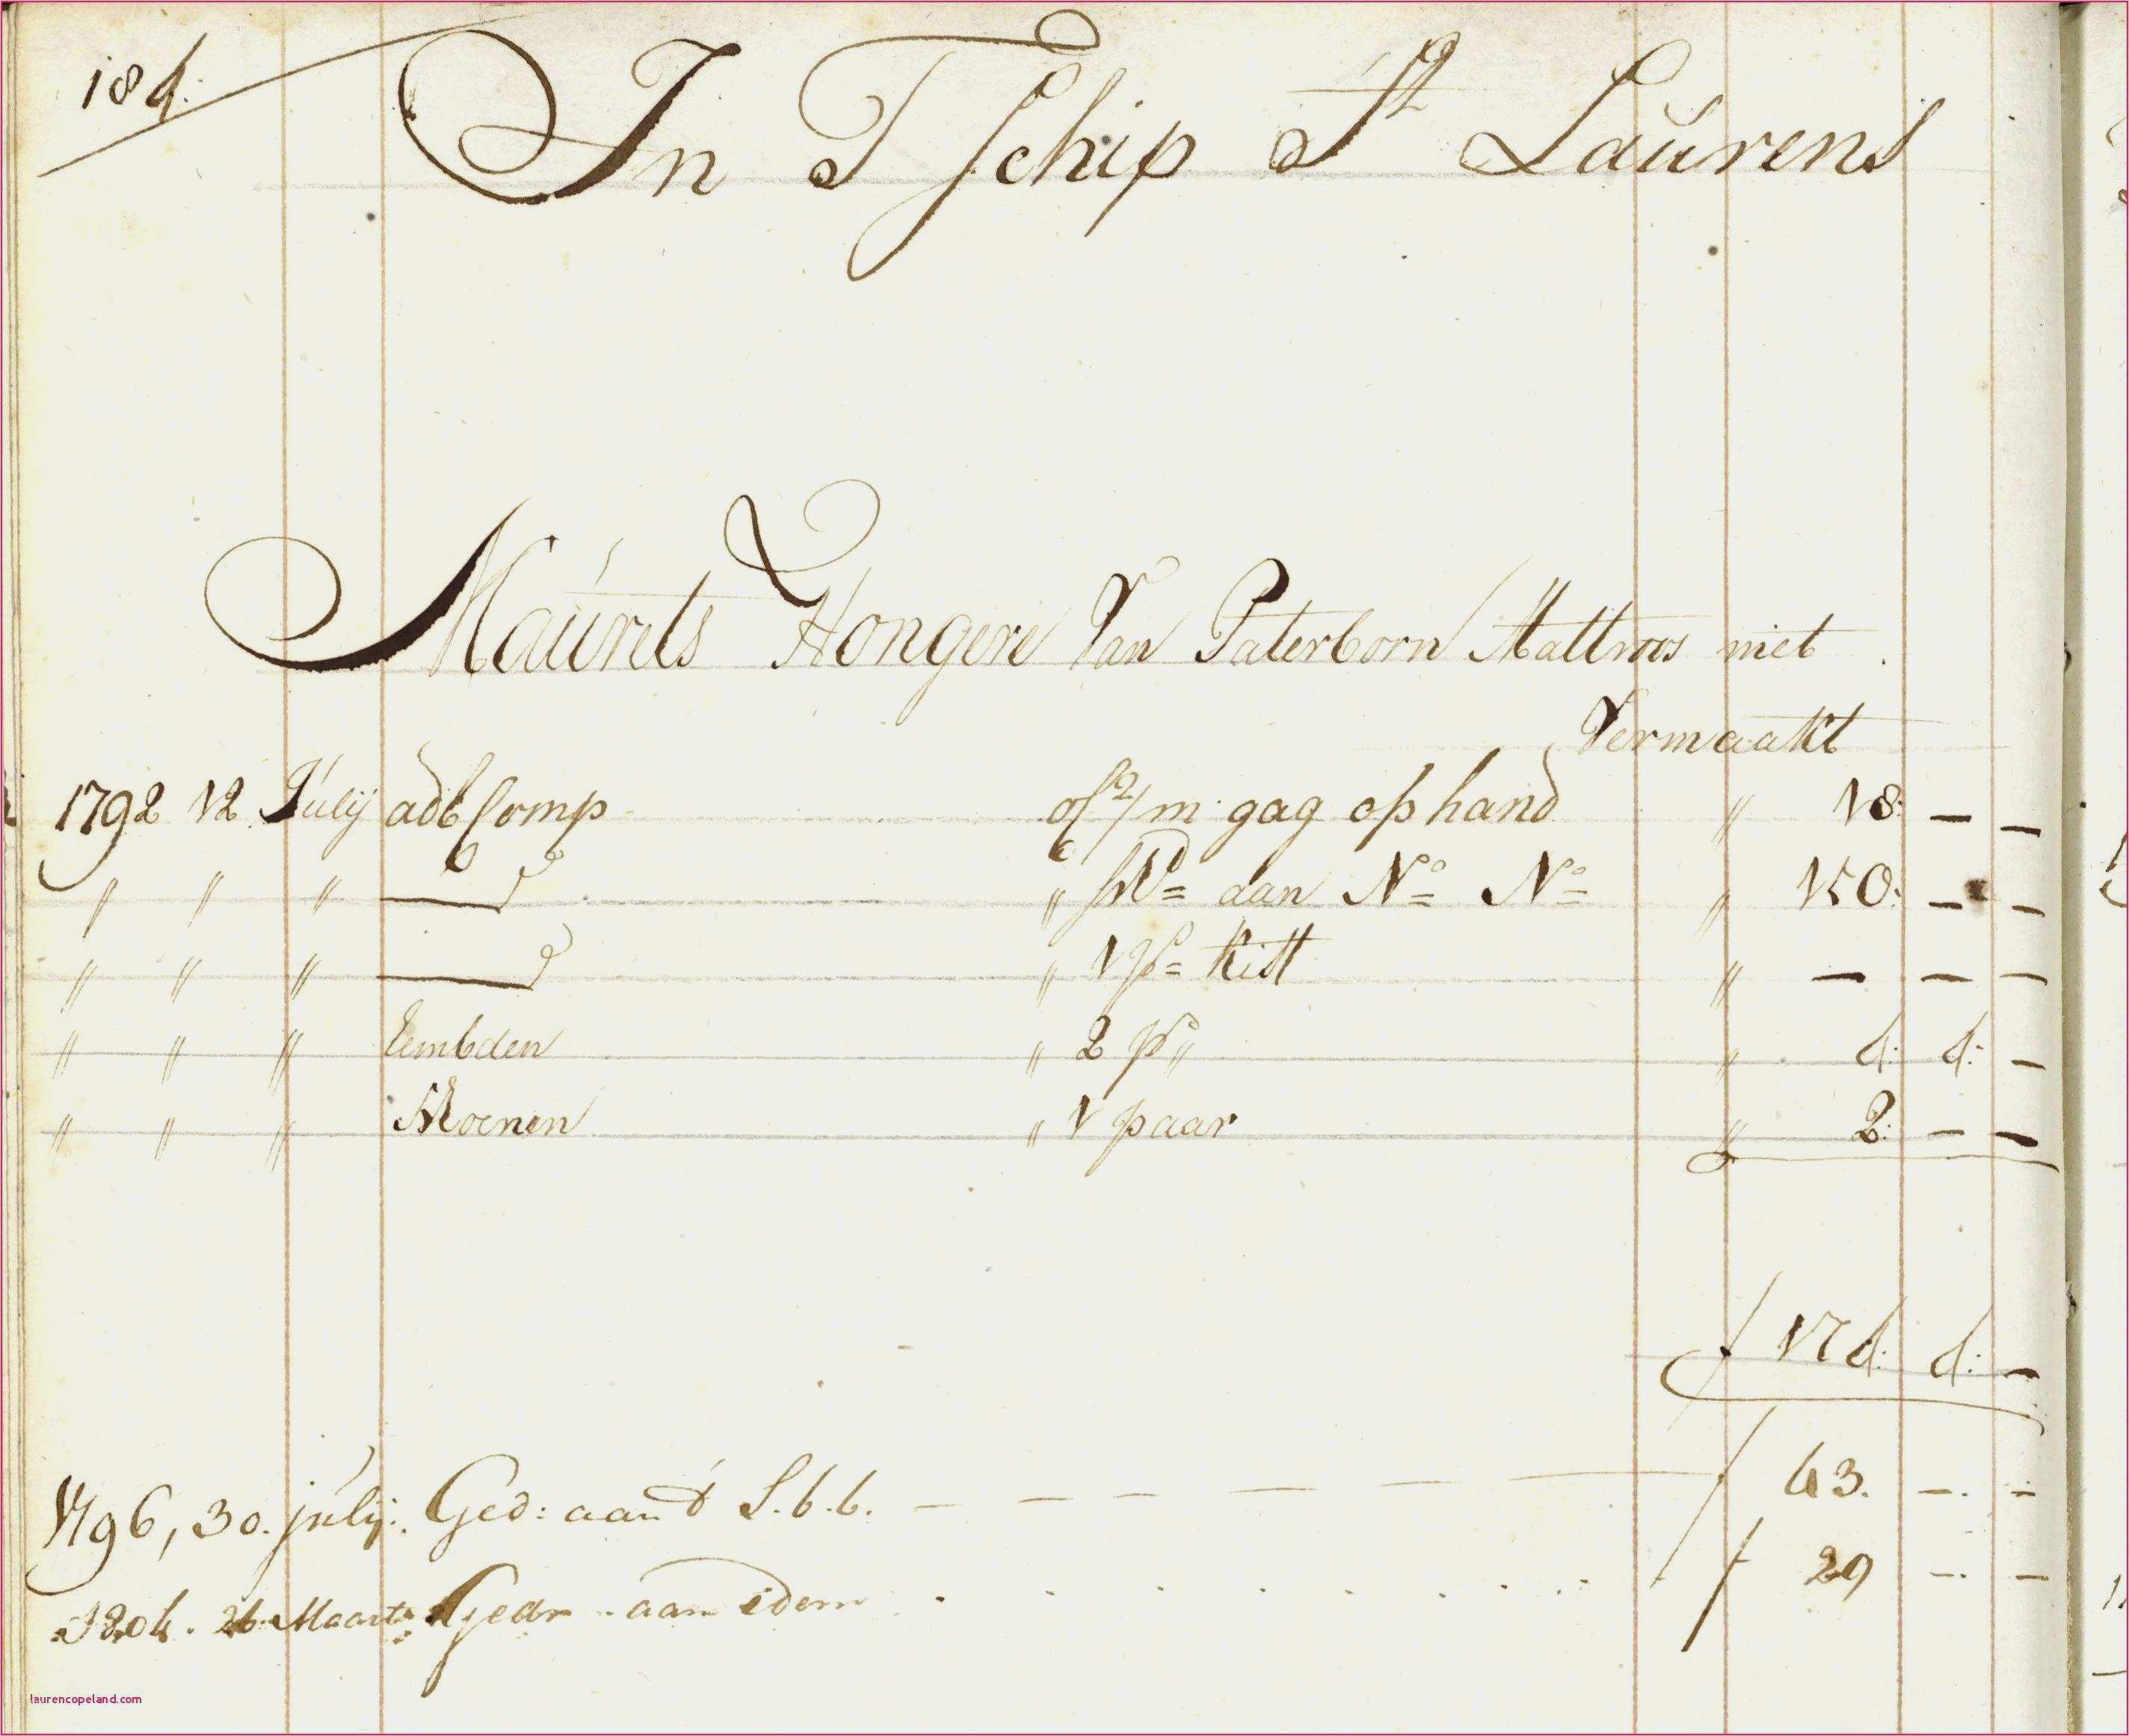 184.
In T Schip St Laurens
Maurits Hongere Van Paterborn Mattroos niet
Vermaakt
1792 12 Julij adb Comp of 2/m gag op hand " 18: — —
" " " " aan No No " 150: — —
" " " " 1 ps= Kist " — — —
" " " Lembden " 2 ps " 4: 4: —
" " " " 1 paar " 2: — —
f 174: 4: —
1796, 30. julij: Ged: aan d S.b.b. — — — — — f 63. —. —
1804. 26 Maart Gedr aan idem . . . . . . . . f 29 —. —
laurencopeland.com